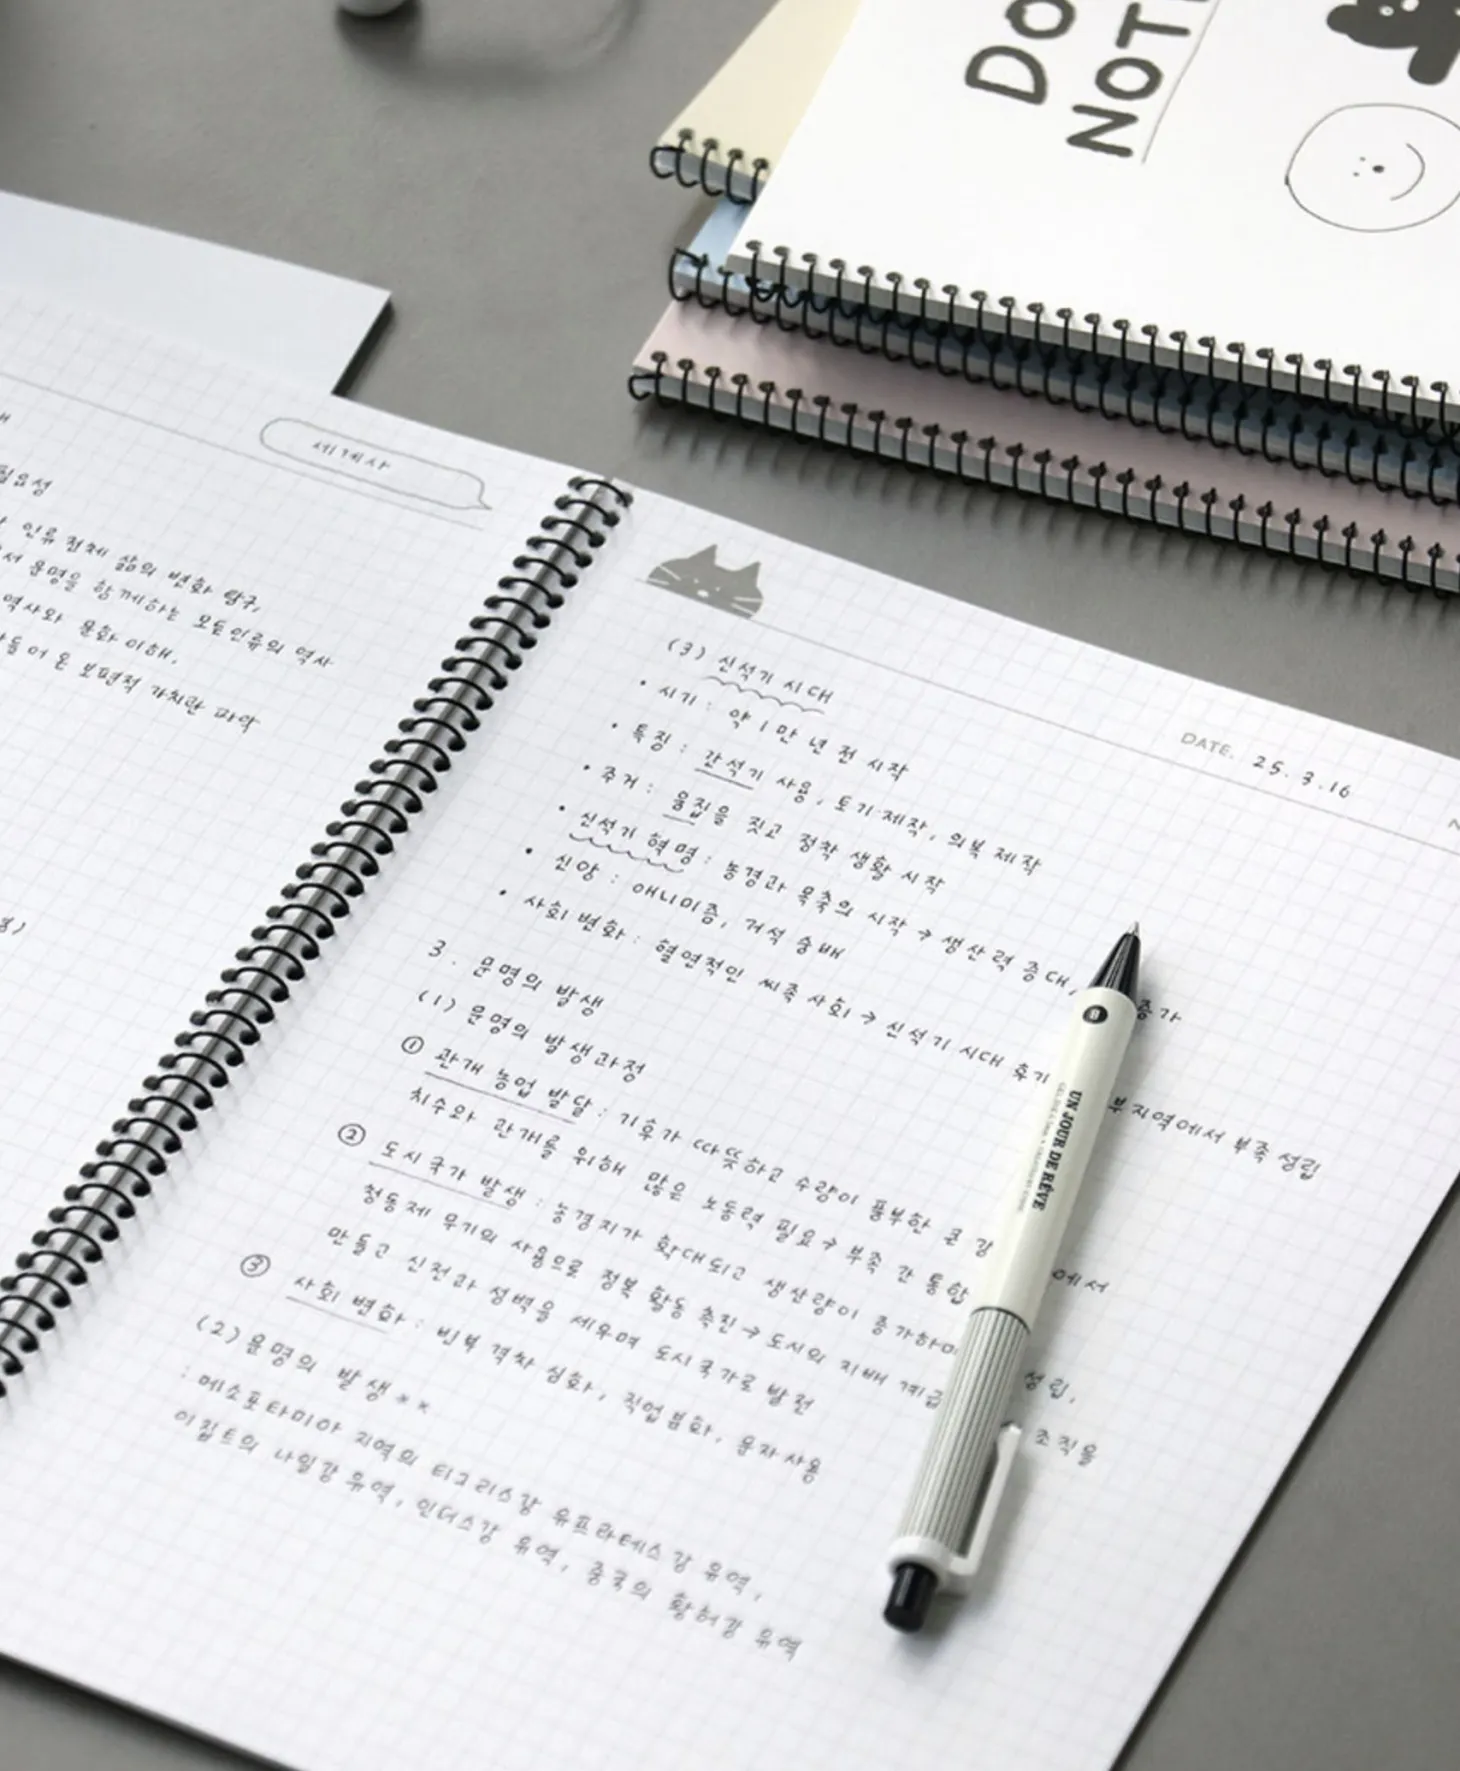 DO
NOT
세계사
필요성
인류 전체 삶의 변화 탐구,
서 문명을 함께하는 모든 인류의 역사
역사와 문화 이해,
들어 온 보편적 가치관 파악
DATE. 25. 3. 16
(3) 신석기 시대
• 시기 : 약 1만 년 전 시작
• 특징 : 간석기 사용, 토기 제작, 의복 제작
• 주거 : 움집을 짓고 정착 생활 시작
• 신석기 혁명 : 농경과 목축의 시작 → 생산력 증대, 증가
• 신앙 : 애니미즘, 거석 숭배
• 사회 변화 : 혈연적인 씨족 사회 → 신석기 시대 후기 부 지역에서 부족 성립
3. 문명의 발생
(1) 문명의 발생 과정
① 관개 농업 발달 : 기후가 따뜻하고 수량이 풍부한 큰 강 에서
치수와 관개를 위해 많은 노동력 필요 → 부족 간 통합
② 도시 국가 발생 : 농경지가 확대되고 생산량이 증가하며 성립,
청동제 무기의 사용으로 정복 활동 촉진 → 도시의 지배 계급 조직을
만들고 신전과 성벽을 세우며 도시 국가로 발전
③ 사회 변화 : 빈부 격차 심화, 직업 분화, 문자 사용
(2) 문명의 발생 **
: 메소포타미아 지역의 티그리스강 유프라테스강 유역,
이집트의 나일강 유역, 인더스강 유역, 중국의 황허강 유역
8
UN JOUR DE RÊVE